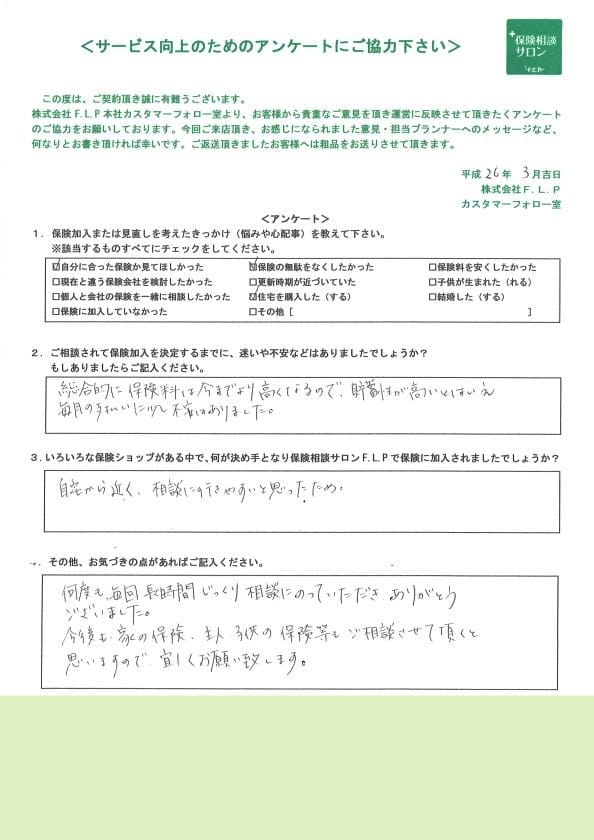 ＜サービス向上のためのアンケートにご協力下さい＞
+保険相談
サロン
F.L.P
この度は、ご契約頂き誠に有難うございます。
株式会社F.L.P本社カスタマーフォロー室より、お客様から貴重なご意見を頂き運営に反映させて頂きたくアンケート
のご協力をお願いしております。今回ご来店頂き、お感じになられました意見・担当プランナーへのメッセージなど、
何なりとお書き頂ければ幸いです。ご返送頂きましたお客様へは粗品をお送りさせて頂きます。
平成 26 年 3 月吉日
株式会社F.L.P
カスタマーフォロー室
＜アンケート＞
１．保険加入または見直しを考えたきっかけ（悩みや心配事）を教えて下さい。
※該当するものすべてにチェックをしてください。
☑自分に合った保険か見てほしかった ☑保険の無駄をなくしたかった □保険料を安くしたかった
□現在と違う保険会社を検討したかった □更新時期が近づいていた □子供が生まれた（れる）
□個人と会社の保険を一緒に相談したかった ☑住宅を購入した（する） □結婚した（する）
□保険に加入していなかった □その他［ ］
２．ご相談されて保険加入を決定するまでに、迷いや不安などはありましたでしょうか？
もしありましたらご記入ください。
総合的に保険料は今までより高くなるので、貯蓄性が高いとはいえ
毎月の支払いに少し不安はありました。
３．いろいろな保険ショップがある中で、何が決め手となり保険相談サロンF.L.Pで保険に加入されましたでしょうか？
自宅から近く、相談に行きやすいと思ったため。
．その他、お気づきの点があればご記入ください。
何度も、毎回長時間じっくり相談にのっていただきありがとう
ございました。
今後も家の保険、主人、子供の保険等もご相談させて頂くと
思いますので、宜しくお願い致します。